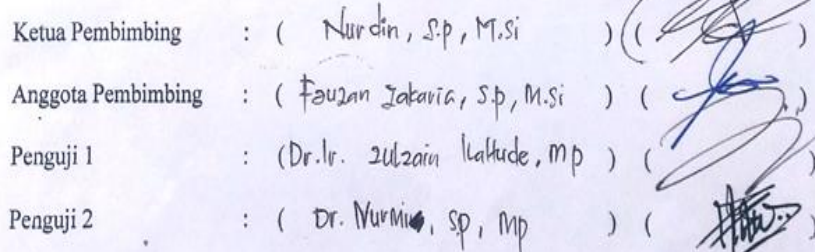 Ketua Pembimbing : ( Nurdin, S.P, M.Si ) ( )
Anggota Pembimbing : ( Fauzan Zakaria, S.P, M.Si ) ( )
Penguji 1 : (Dr.Ir. Zulzain Ilahude, MP ) ( )
Penguji 2 : ( Dr. Nurmi, SP, MP ) ( )